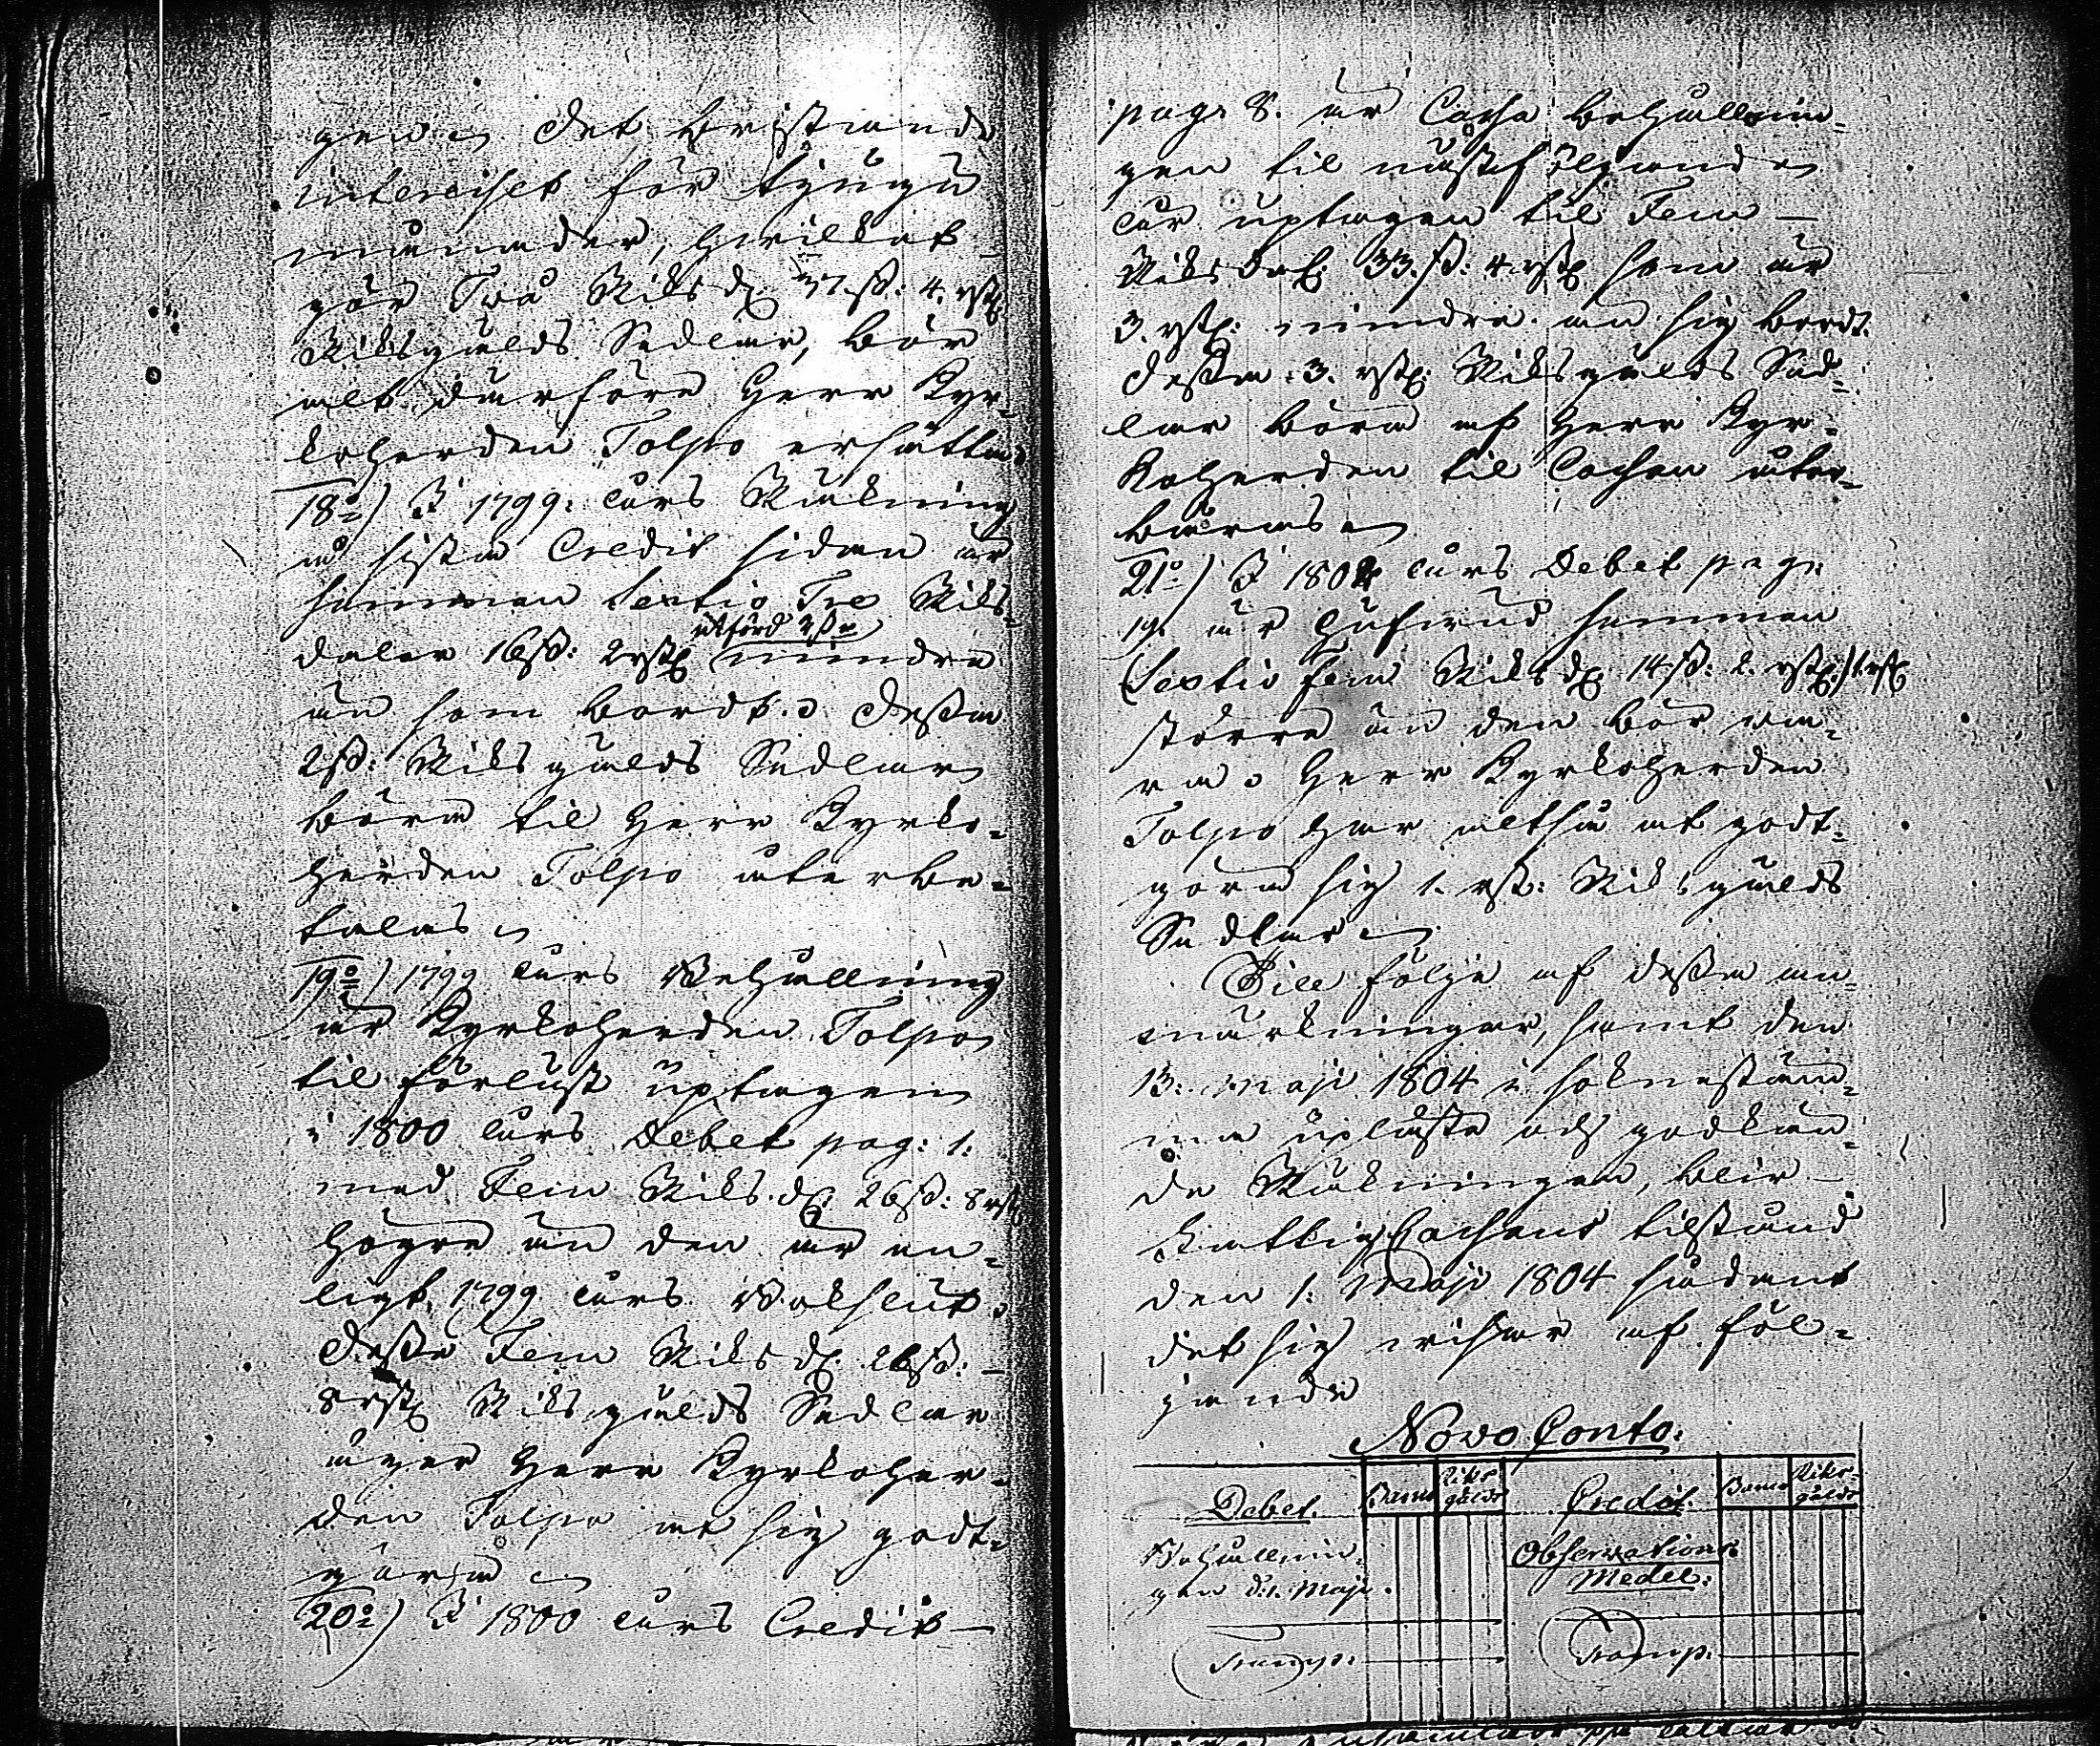 gen. Det bristande
interesset för tjugu
månader, hvilket
gör Två Riksd. 37 ß: 4. rst.
Riksgälds Sedlar, bör
alt därföre Herr Kyr-
koherden Tolpo ersätta.
18:o) I 1799: års Räkning
å sista Credit sidan är
summan sextio Tre Riks-
utförd 2 ß
daler 16 ß: 2 rst. mindre
än som bordt. Dessa
2 ß: Riksgälds Sedlar
böra til Herr Kyrko-
herden Tolpo återbe-
talas.
19:o) 1799 års Behållning
är Kyrkoherden Tolpo
til förlust uptagen
i 1800 års Debet pag: 1:
med Fem Riksd. 26 ß: 8 rst.
högre än den är en-
ligt 1799 års Bokslut.
Dessa Fem Riksd. 26 ß:
8 rst. Riksgälds Sedlar
äger Herr Kyrkoher-
den Tolpo at sig godt-
göra.
20:o) I 1800 års Credit
pag. 8. är Cassa behållnin-
gen til nästföljande
år uptagen til Fem
Riksdal. 33. ß: 4. rst. som är
3. rst: mindre än sig bordt.
Dessa 3. rst: Riksgälds Sed-
lar böra af Herr Kyr-
koherden til Cassan åter-
bäras.
21:o) I 1802 års Debet pag:
19. är hufvud summan
(Sextio fem Riksd. 14 ß: 2. rst:) 1 rst.
större än den bör va-
ra. Herr Kyrkoherden
Tolpo har altså at godt-
göra sig 1. rst: Riksgälds
Sedlar.
Till följe af dessa an-
märkningar, samt den
13: Maji 1804 i soknestäm-
ma upläste och godkän-
de Räkningen, blir
Fattig Cassans tilstånd
den 1: Maji 1804 sådant
det sig visar af föl-
jande
Novo Conto:
Debet. Banco Riksgälds Credit. Banco Riksgälds
Behållnin- Observations
gen d: 1. Maji. Medel:
Transp: Transp: